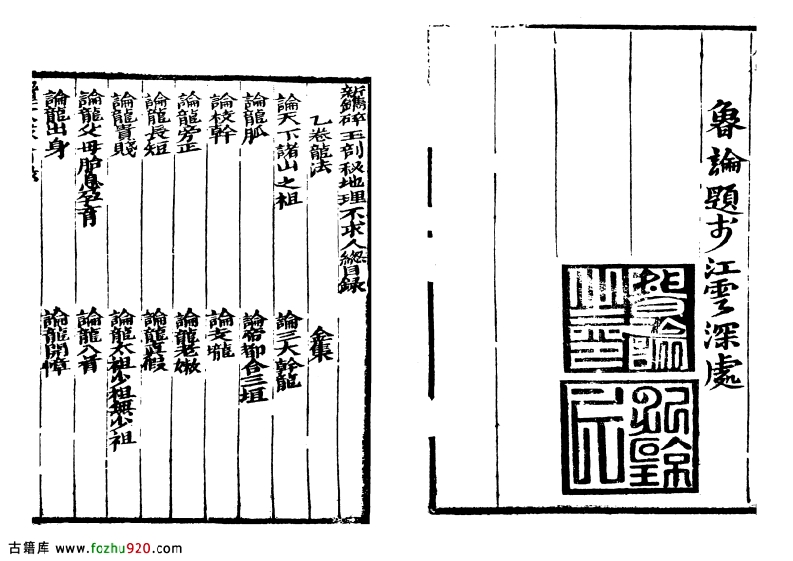 魯論題於江雲深處
新鐫碎玉剖秘地理不求人總目錄
乙卷龍法 金集
論天下諸山之祖 論三大幹龍
論龍脈 論帝都合三垣
論枝幹 論支壠
論龍旁正 論龍老嫩
論龍長短 論龍真假
論龍貴賤 論龍太祖少祖無少祖
論龍父母胎息孕育 論龍入首
論龍出身 論龍開帳
古籍库 www.fozhu920.com